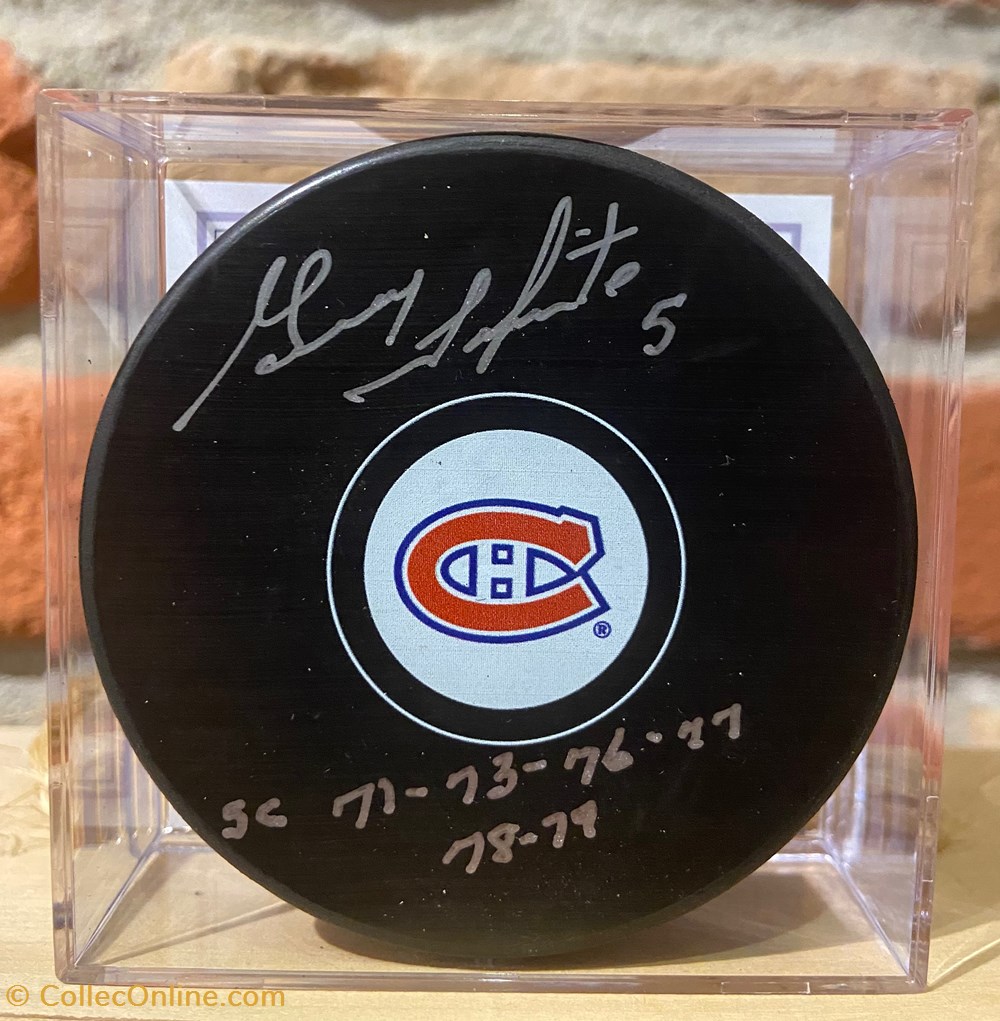 Guy Lapointe 5
CH
®
SC 71-73-76-77
78-79
© CollecOnline.com